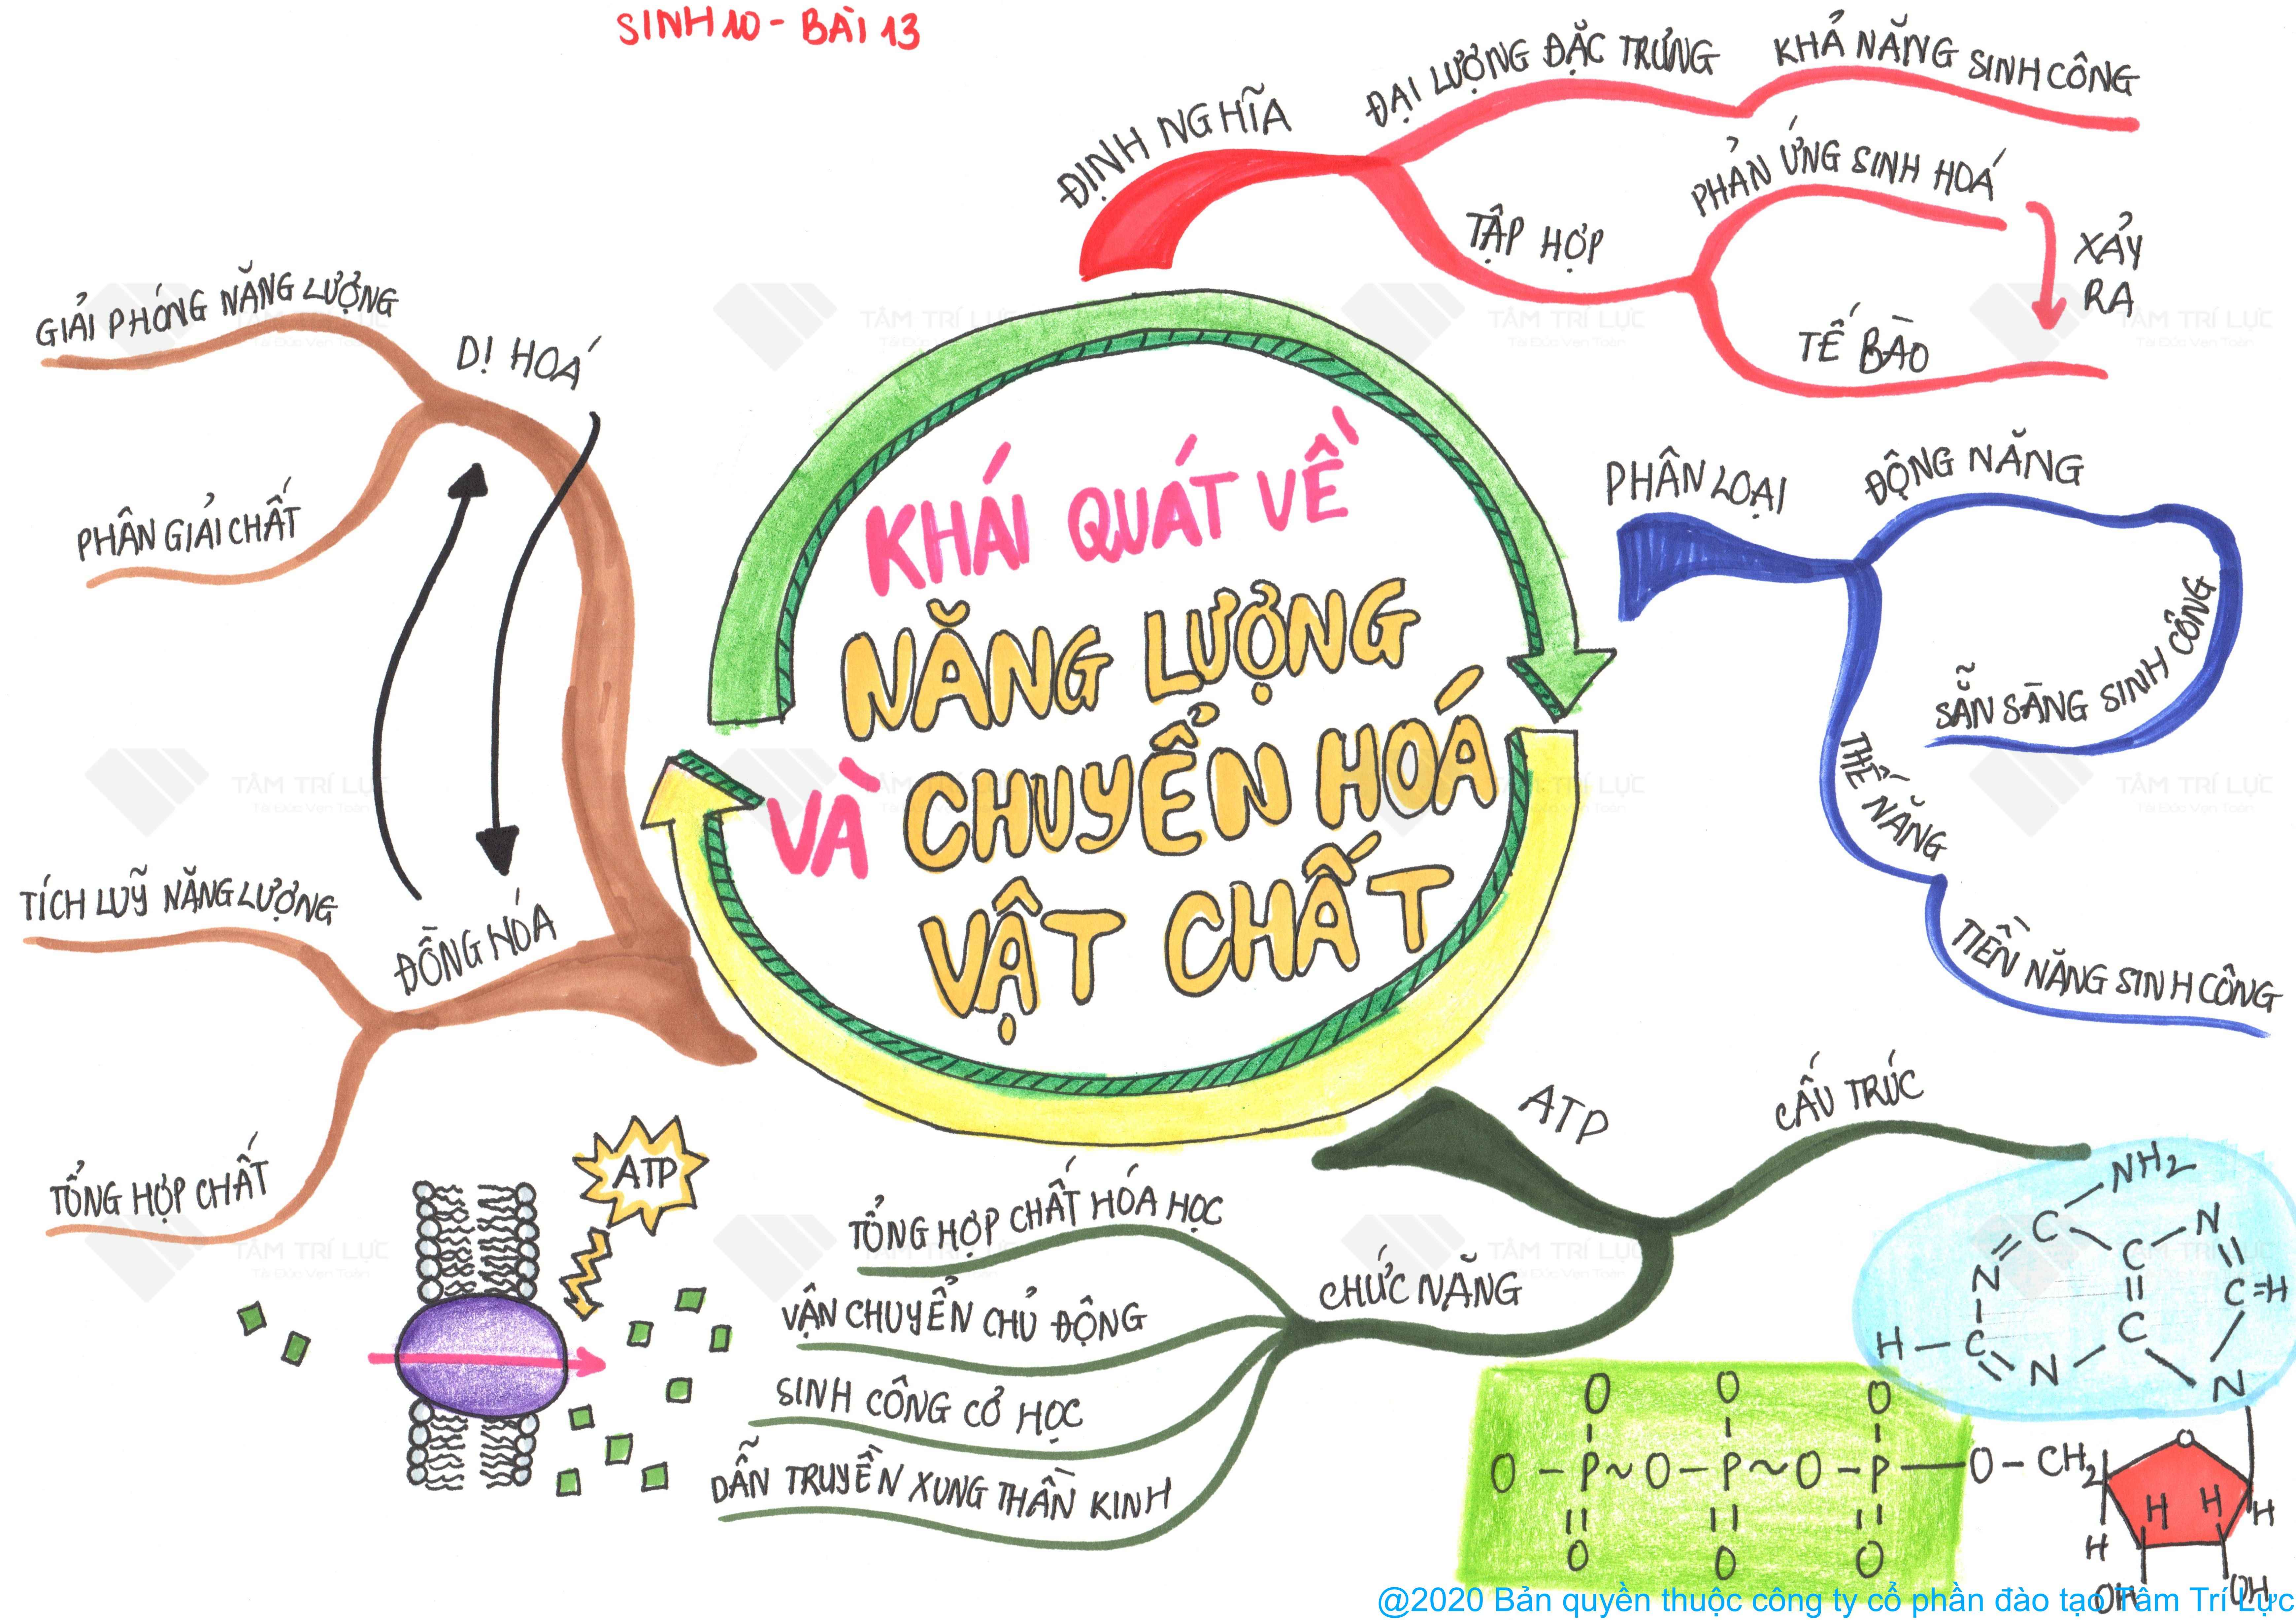 SINH 10 - BÀI 13
KHÁI QUÁT VỀ
NĂNG LƯỢNG
VÀ CHUYỂN HOÁ
VẬT CHẤT
ĐỊNH NGHĨA
ĐẠI LƯỢNG ĐẶC TRƯNG
KHẢ NĂNG SINH CÔNG
TẬP HỢP
PHẢN ỨNG SINH HOÁ
XẢY
RA
TẾ BÀO
PHÂN LOẠI
ĐỘNG NĂNG
SẴN SÀNG SINH CÔNG
THẾ NĂNG
TIỀN NĂNG SINH CÔNG
ATP
CẤU TRÚC
NH2
C
N
C
N
C
C=H
H
C
N
C
N
O O O
O - P ~ O - P ~ O - P - O - CH2
O O O
O
H H H
H
OH OH
CHỨC NĂNG
TỔNG HỢP CHẤT HÓA HỌC
VẬN CHUYỂN CHỦ ĐỘNG
SINH CÔNG CƠ HỌC
DẪN TRUYỀN XUNG THẦN KINH
ATP
DỊ HOÁ
GIẢI PHÓNG NĂNG LƯỢNG
PHÂN GIẢI CHẤT
ĐỒNG HÓA
TÍCH LUỸ NĂNG LƯỢNG
TỔNG HỢP CHẤT
TÂM TRÍ LỰC
@2020 Bản quyền thuộc công ty cổ phần đào tạo Tâm Trí Lực